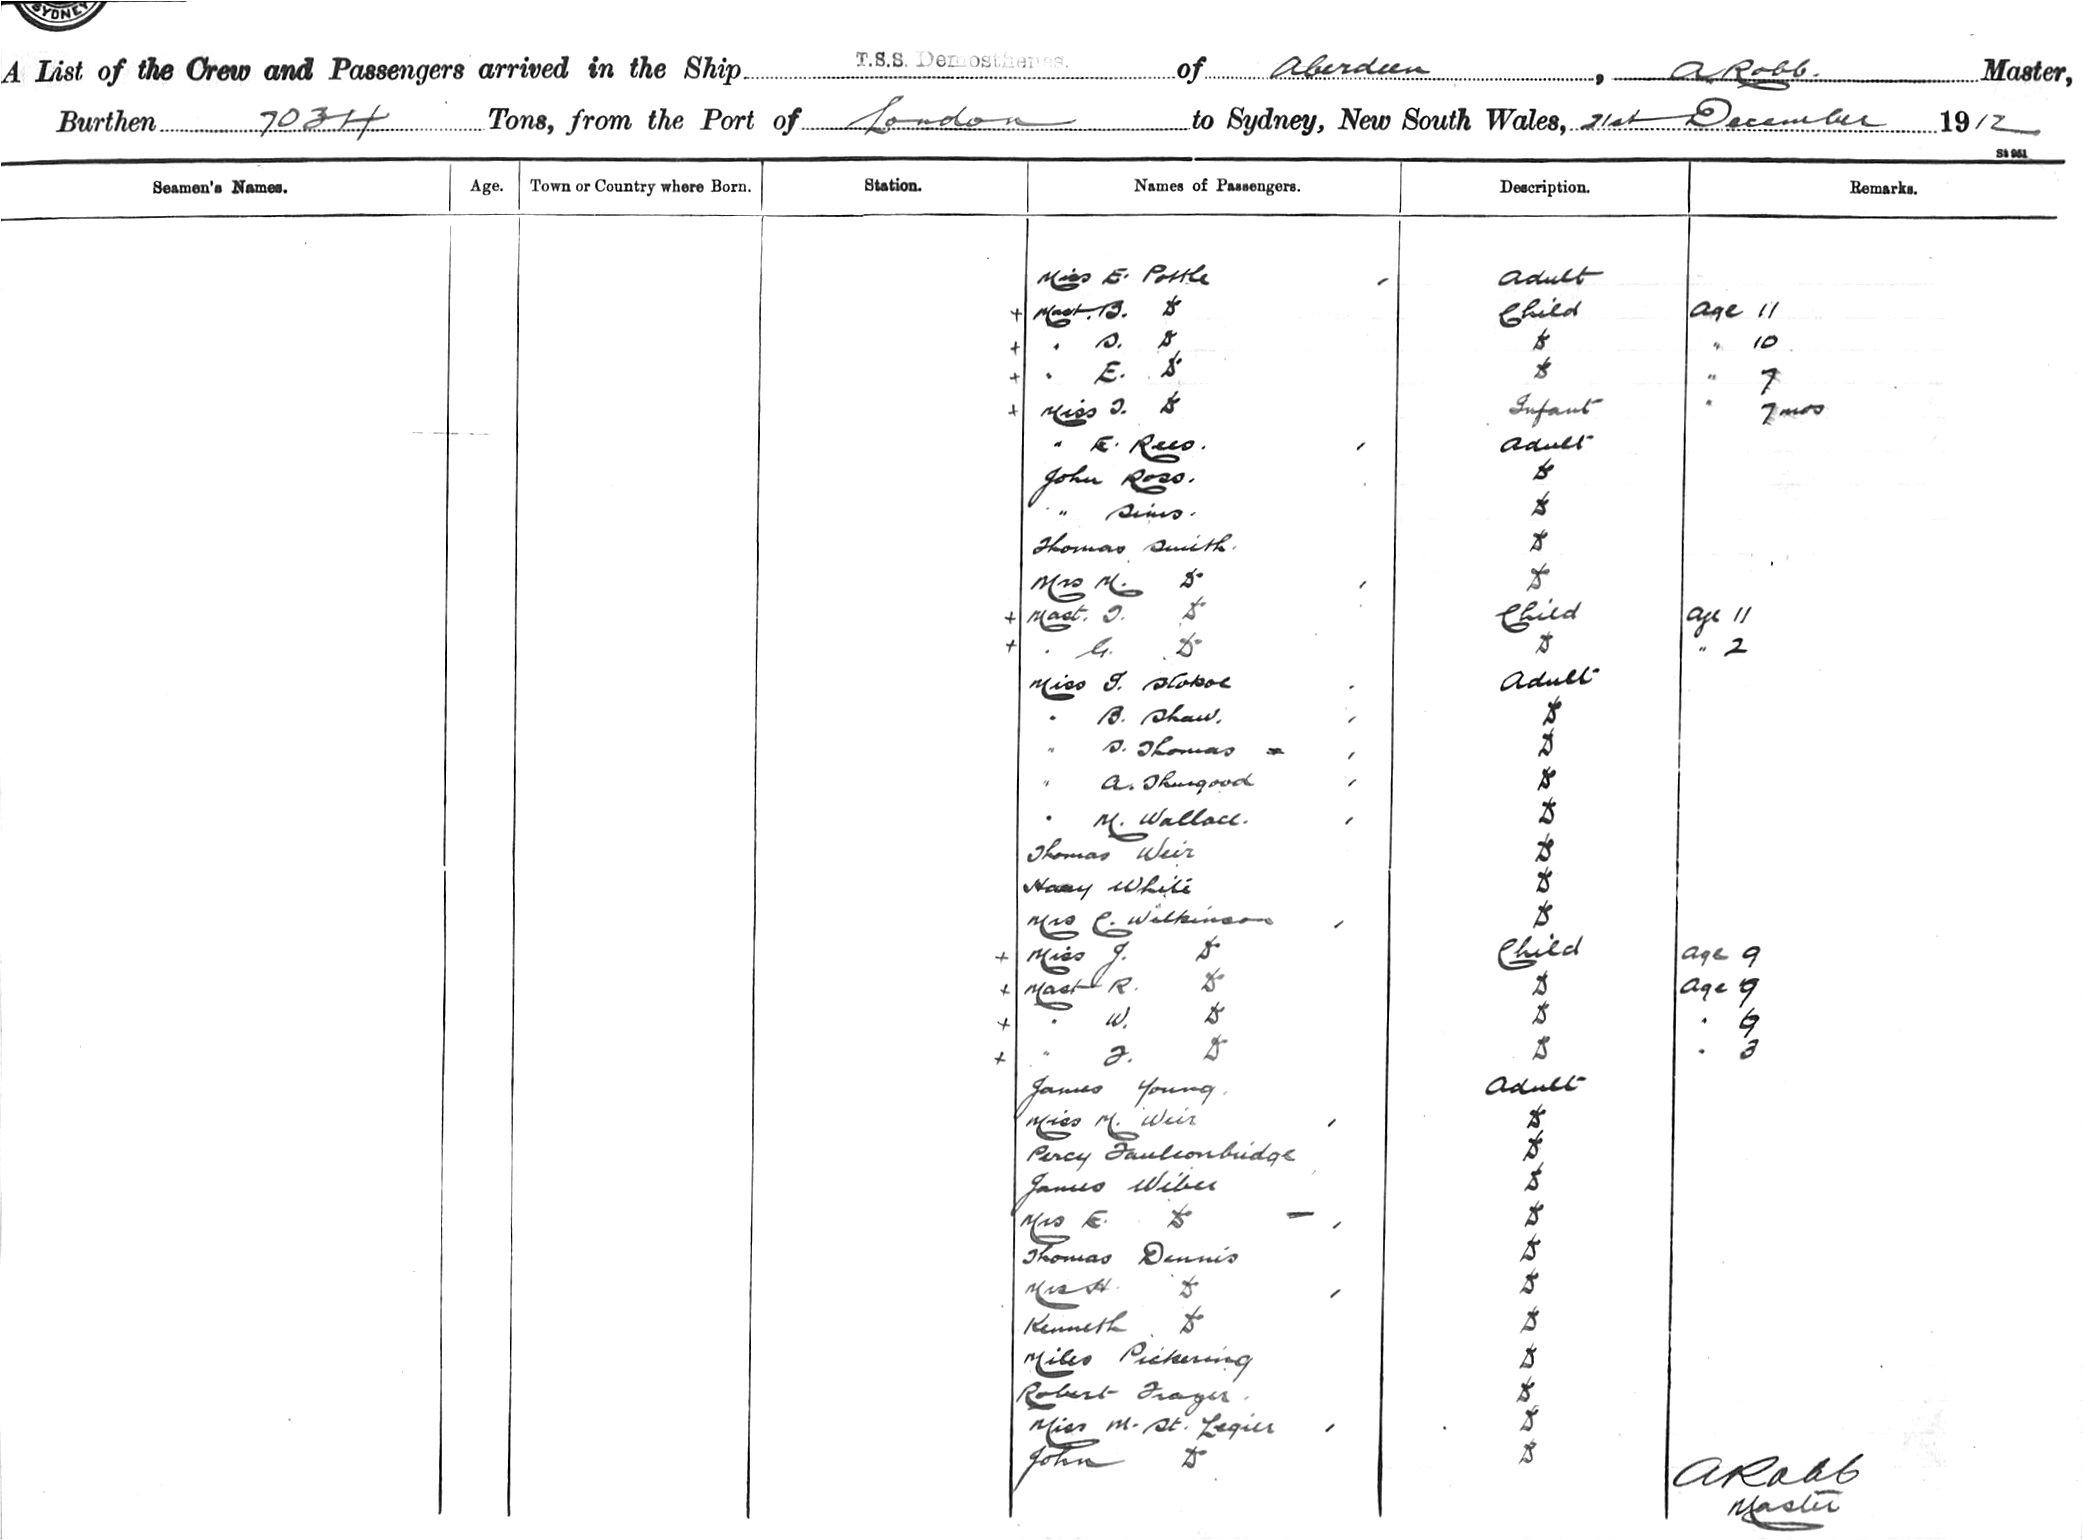 SYDNEY
A List of the Crew and Passengers arrived in the Ship T.S.S. Demosthenes. of Aberdeen, A Robb. Master,
Burthen 7034 Tons, from the Port of London to Sydney, New South Wales, 21st December 1912
St 951
Seamen's Names. Age. Town or Country where Born. Station. Names of Passengers. Description. Remarks.
Miss E. Pottle Adult
+ Mast. B. Do Child Age 11
+ " S. Do Do " 10
+ " E. Do Do " 7
+ Miss I. Do Infant " 7 mos
" E. Rees. Adult
John Ross. Do
" Sims. Do
Thomas Smith. Do
Mrs M. Do Do
+ Mast. I. Do Child Age 11
+ " G. Do Do " 2
Miss I. Stokoe Adult
" B. Shaw. Do
" S. Thomas Do
" A. Thurgood Do
" M. Wallace. Do
Thomas Weir Do
Harry White Do
Mrs C. Wilkinson Do
+ Miss J. Do Child Age 9
+ Mast R. Do Do Age 9
+ " W. Do Do "
+ " F. Do Do " 3
James Young. Adult
Miss M. Weir Do
Percy Faulconbridge Do
James Wiber Do
Mrs E. Do — Do
Thomas Dennis Do
Mrs H. Do Do
Kenneth Do Do
Miles Pickering Do
Robert Frazer. Do
Miss M. St. Legier Do
John Do Do
A Robb
Master